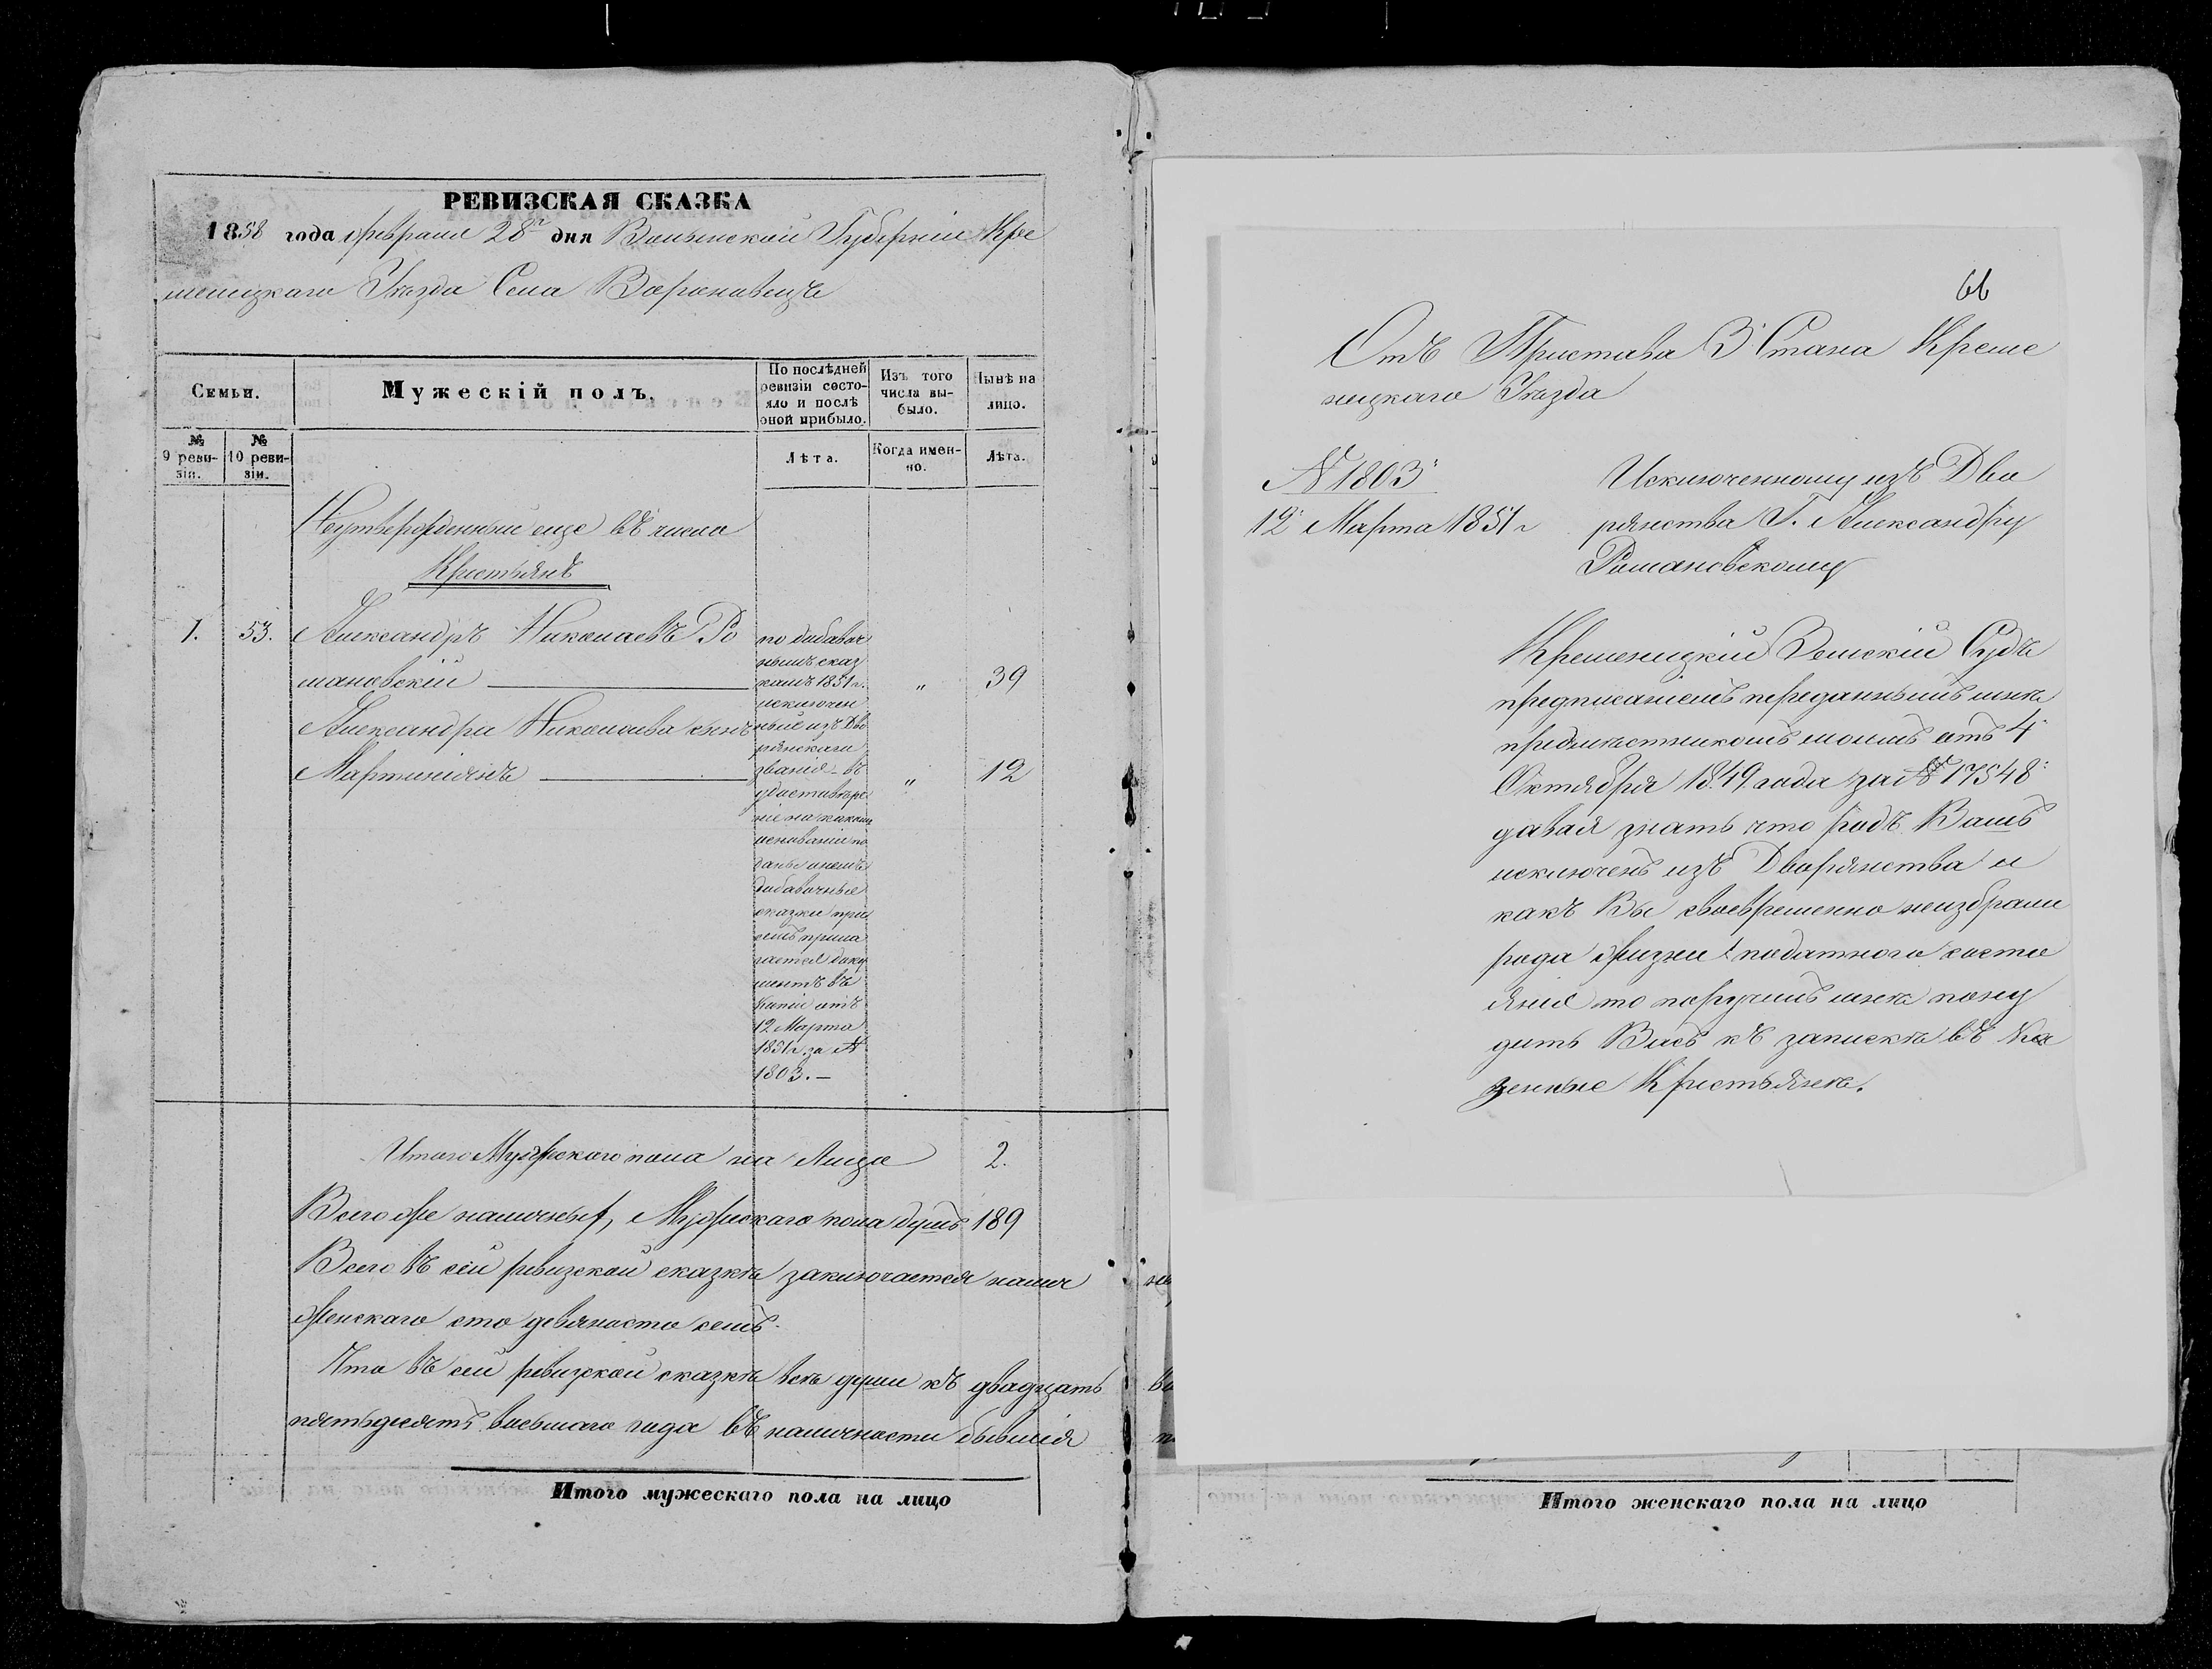 РЕВИЗСКАЯ СКАЗКА
1858 года февраля 28го дня Волынской Губерніи Кре
менецкаго Уѣзда Села Вороновецъ
Семьи.
Мужескій полъ.
По послѣдней ревизіи состояло и послѣ оной прибыло.
Изъ того числа выбыло.
Нынѣ на лицо.
№ 9 ревизіи.
№ 10 ревизіи.
Лѣта.
Когда именно.
Лѣта.
Неутвержденный еще въ числѣ
Крестьянъ
1. 53. Александръ Николаевъ Ро
мановскій " 39
Александра Николаева сынъ
Мартиніянъ " 12
по добавоч
нымъ сказ
камъ 1851 г.
исключен
ные изъ Дво
рянскаго
званія въ
удостовѣре
ніе на каком
основаніи по
даны имъ
добавочные
сказки при
семъ прила
гается доку
ментъ въ
Копіи отъ
12 Марта
1851 г. за №
1803. —
Итого Мужескаго пола на Лицо 2.
Всего же наличныхъ, Мужескаго пола душъ 189
Всего въ сей ревизской сказкѣ заключается налич
Женскаго сто девяносто семь.
Что въ сей ревизской сказкѣ всѣ души къ двадцать
пятьдесятъ восьмаго года въ наличности бывшія
Итого мужескаго пола на лицо
66
Отъ Пристава 3 Стана Креме
нецкаго Уѣзда
№ 1803
12 Марта 1851 г
Исключенному изъ Дво
рянства Г. Александру
Романовскому
Кременецкій Земскій Судъ
предписаніемъ переданнымъ мнѣ
предмѣстникомъ моимъ отъ 4
Октября 1849 года за № 17548
давая знать что родъ Вашъ
исключенъ изъ Дворянства и
какъ Вы своевременно неизбрали
рода жизни податного состо
янія то поручилъ мнѣ пону
дить Васъ къ запискѣ въ Ка
зенные Крестьяне.
Итого женскаго пола на лицо